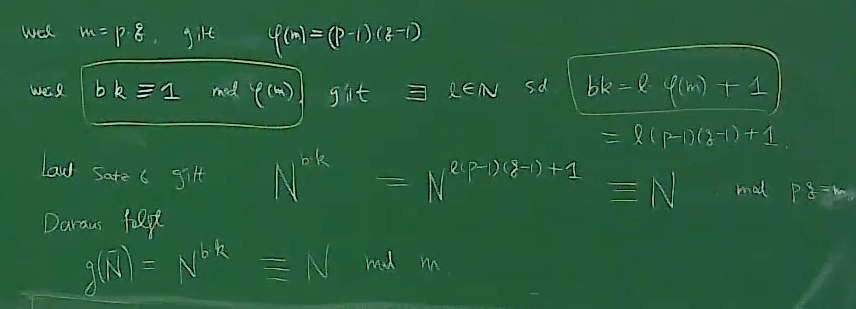 weil m = p·q, gilt φ(m) = (p-1)(q-1)
weil b k ≡ 1 mod φ(m), gilt ∃ l∈N sd bk = l·φ(m) + 1
= l(p-1)(q-1)+1.
Laut Satz 6 gilt N^{b·k} = N^{l(p-1)(q-1)+1} ≡ N mod p q = m
Daraus folgt
g(N̄) = N^{b·k} ≡ N mod m.